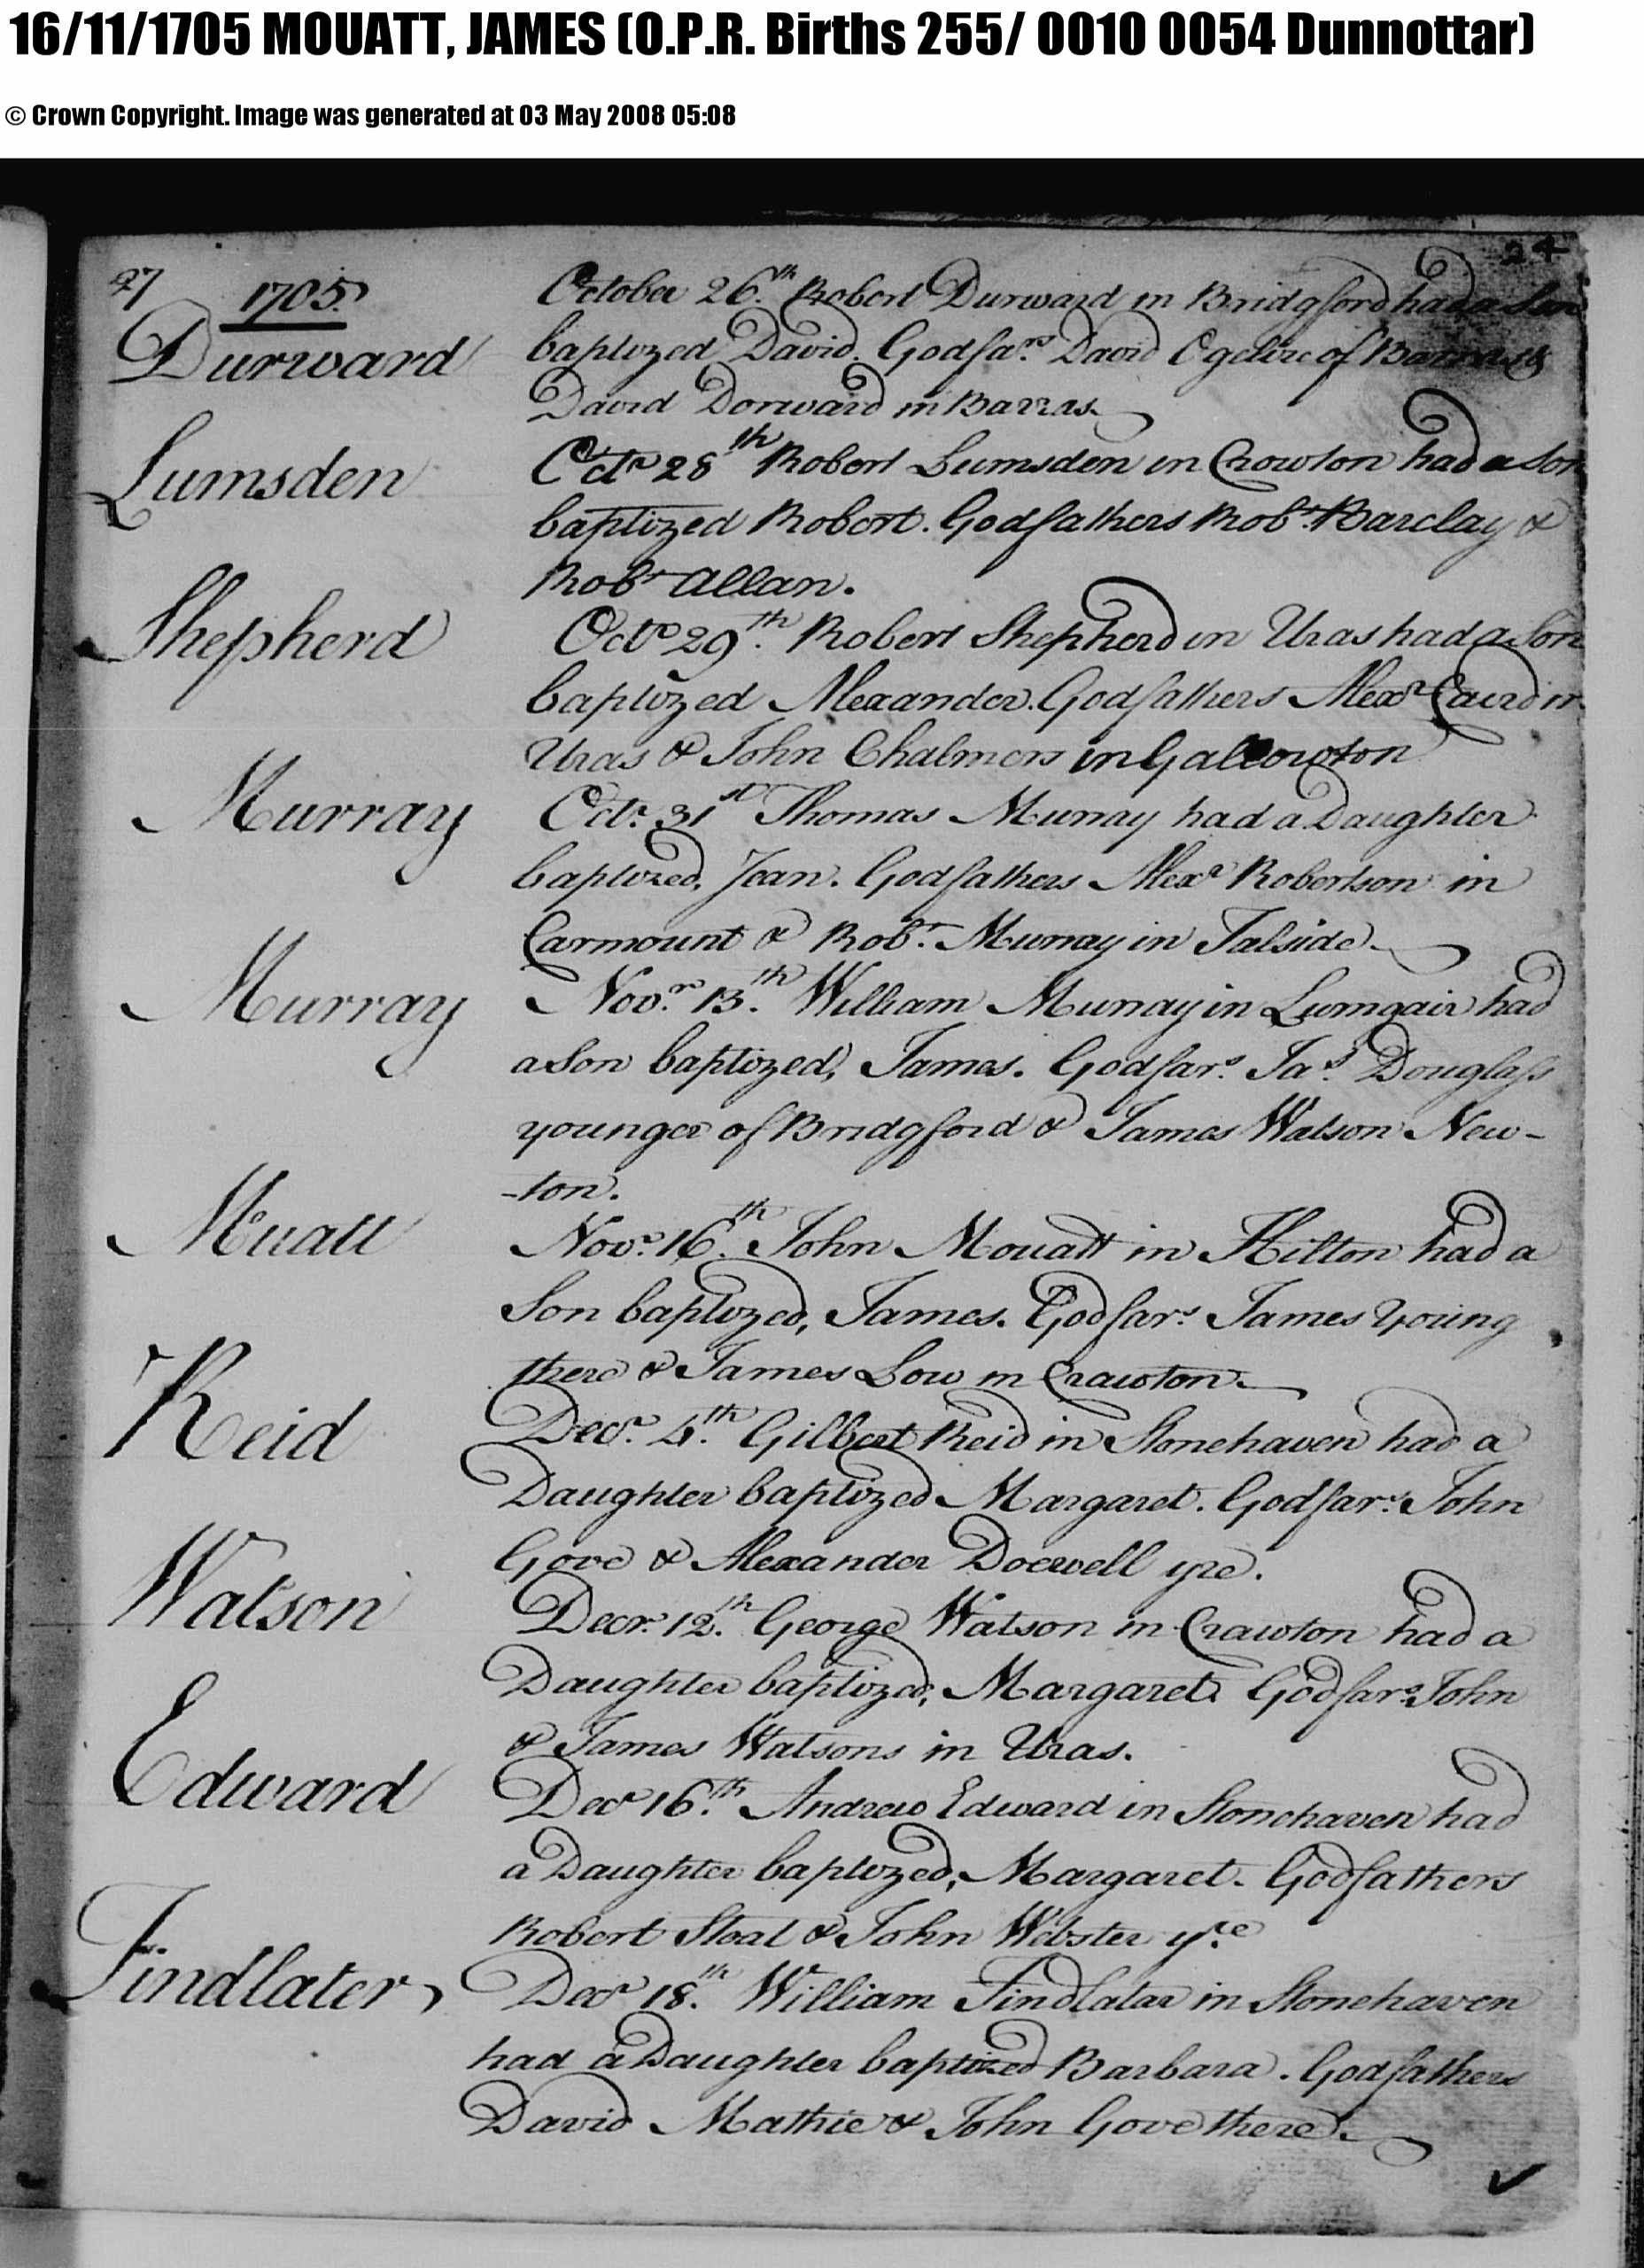 16/11/1705 MOUATT, JAMES (O.P.R. Births 255/ 0010 0054 Dunnottar)
© Crown Copyright. Image was generated at 03 May 2008 05:08
27 1705. 24
Durward October 26.th Robert Durward in Bridgford had a Son
baptized David. Godfa.rs David Ogilvie of Barras &
David Dorward in Barras.
Lumsden Octr 28th Robert Lumsden in Crowton had a Son
baptized Robert. Godfathers Robt. Barclay &
Robt Allan.
Shepherd Octr 29th. Robert Shepherd in Uras had a Son
baptized Alexander. Godfathers Alexr Caird in
Uras & John Chalmers in Gallowton
Murray Octr. 31st Thomas Murray had a Daughter
baptized, Jean. Godfathers Alexr Robertson in
Carmount & Robt. Murray in Talside.
Murray Novr. 13.th William Murray in Lumgair had
a Son baptized, James. Godfars. Jas. Douglass
younger of Bridgford & James Watson New-
-ton.
Muatt Novr. 16.th John Mouatt in Hilton had a
Son baptized, James. Godfars. James Young
there & James Low in Crawton.
Reid Decr. 4.th Gilbert Reid in Stonehaven had a
Daughter baptized Margaret. Godfars. John
Gove & Alexander Doewell yre.
Watson Decr. 12.th George Watson in Crawton had a
Daughter baptized, Margaret. Godfars. John
& James Watsons in Uras.
Edward Decr 16.th Andrew Edward in Stonehaven had
a Daughter baptized, Margaret. Godfathers
Robert Stoal & John Webster yre
Findlater Decr 18.th William Findlater in Stonehaven
had a Daughter baptized Barbara. Godfathers
David Mathie & John Gove there.